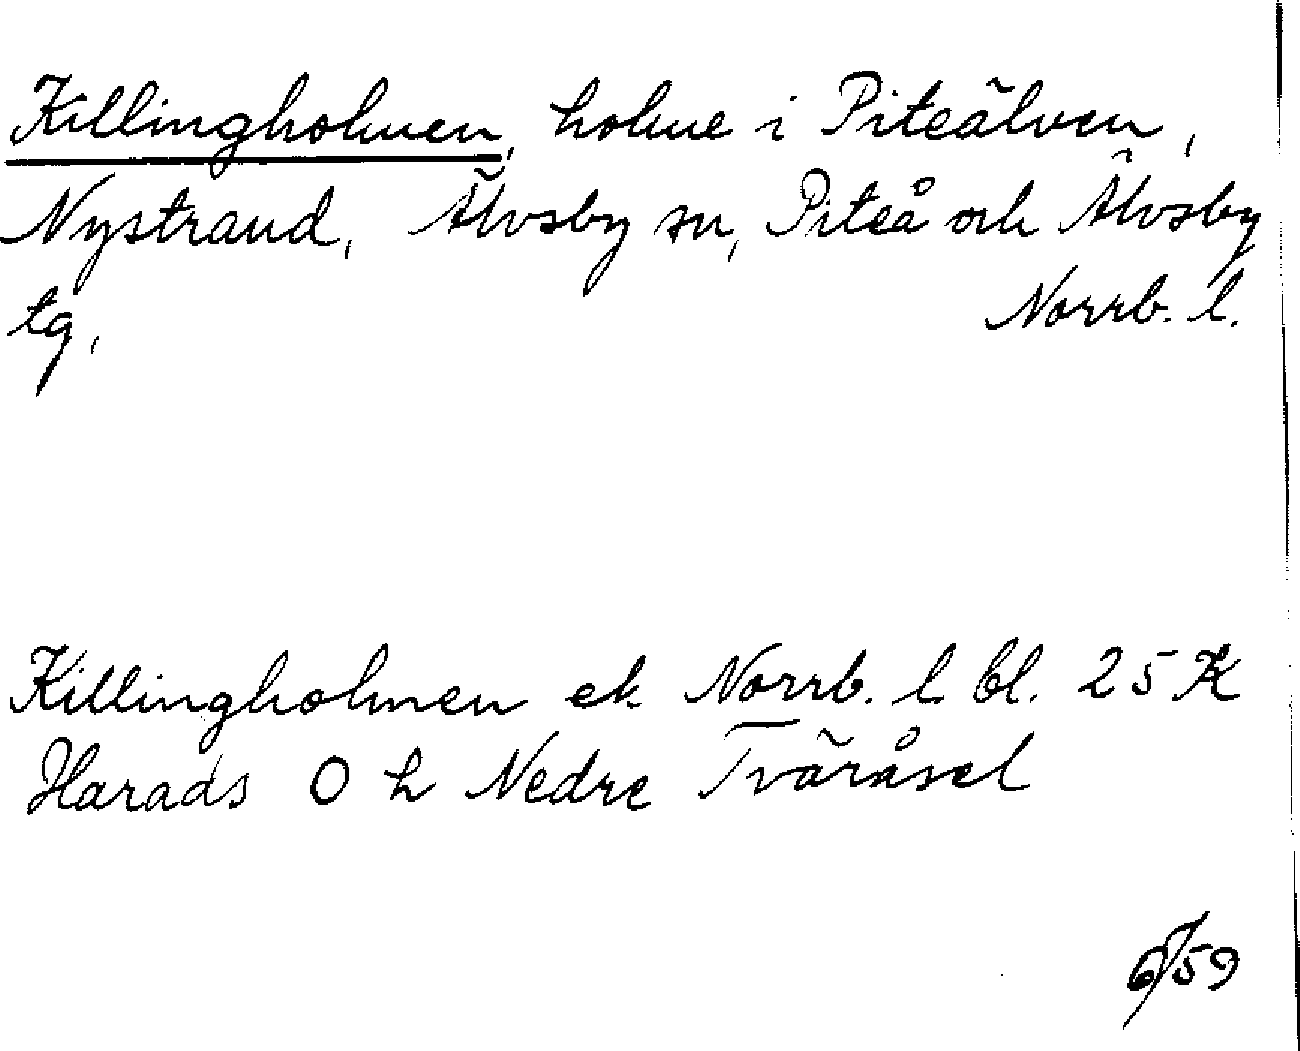 Killingholmen, holme i Piteälven,
Nystrand, Älvsby sn, Piteå och Älvsby
tg, Norrb. l.
Killingholmen ek Norrb. l. bl. 25 K
Harads O h Nedre Tväråsel
6/59